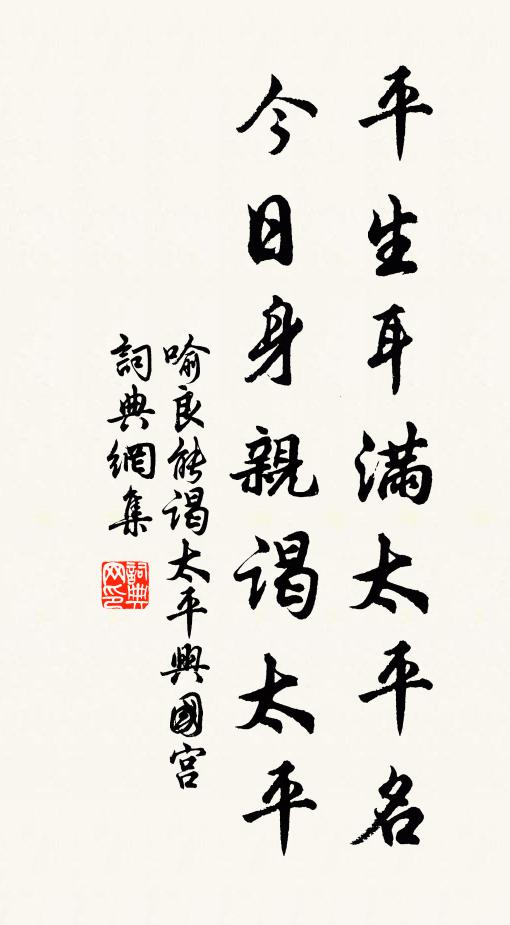 平生耳滿太平名
今日身親謁太平
喻良能謁太平興國宮
詞典網集
詞典网印